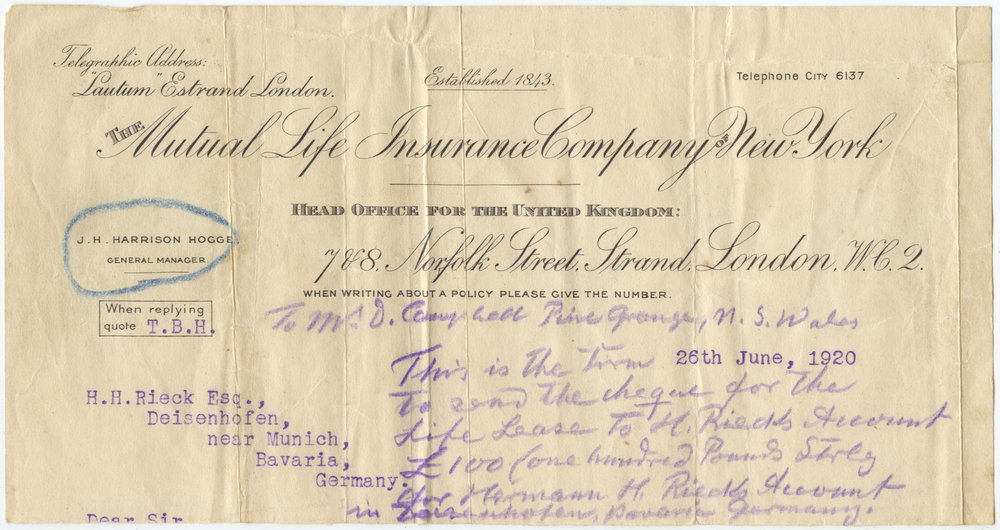 Telegraphic Address:
"Lautum" Estrand London.
Established 1843.
Telephone CITY 6137
THE Mutual Life Insurance Company OF New York
HEAD OFFICE FOR THE UNITED KINGDOM:
J. H. HARRISON HOGGE,
GENERAL MANAGER.
7 & 8, Norfolk Street, Strand, London, W.C. 2.
WHEN WRITING ABOUT A POLICY PLEASE GIVE THE NUMBER.
When replying
quote T.B.H.
To Mr D. Campbell Pine Grange, N. S. Wales
26th June, 1920
This is the firm
To send the cheque for the
Life Lease To H. Riecks Account
£100 (one hundred Pounds Strlg
for Hermann H. Riecks Account
in Deisenhofen, Bavaria Germany.
H.H.Rieck Esq.,
Deisenhofen,
near Munich,
Bavaria,
Germany.
Dear Sir